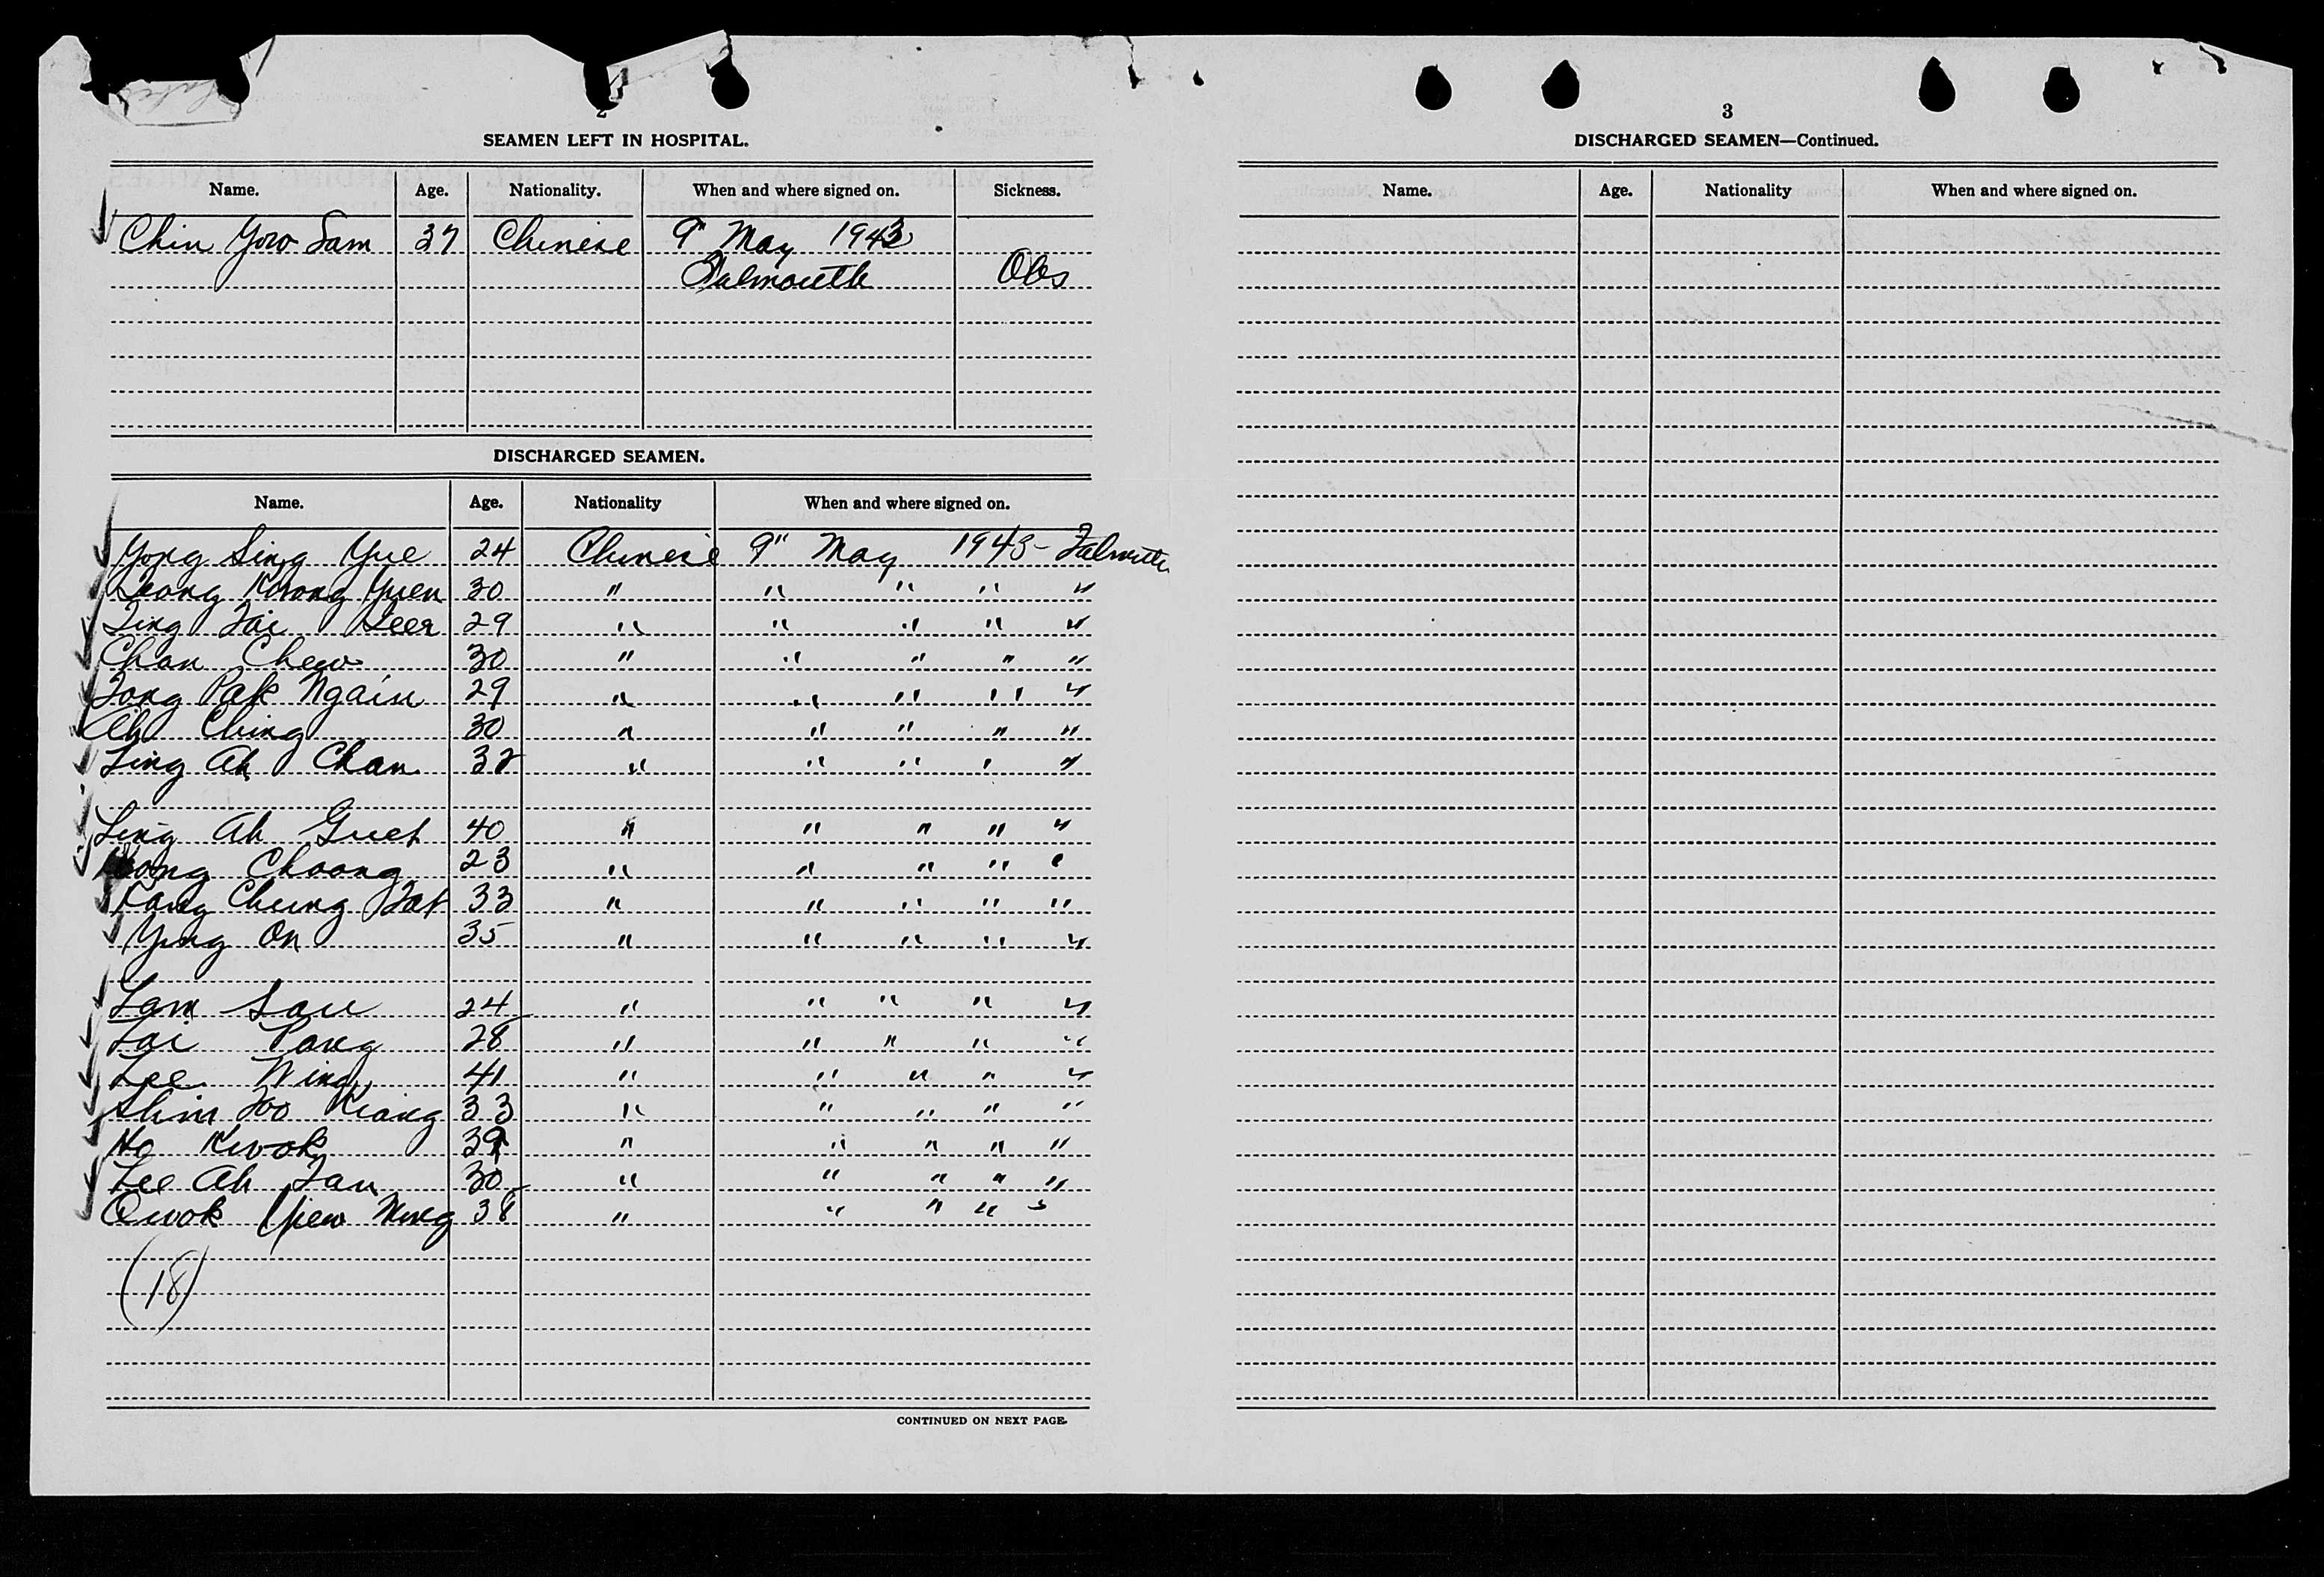 2
SEAMEN LEFT IN HOSPITAL.
Name. Age. Nationality. When and where signed on. Sickness.
Chin Yow Sam 37 Chinese 9" May 1943
Falmouth Obs
DISCHARGED SEAMEN.
Name. Age. Nationality When and where signed on.
Yong Sing Yue 24 Chinese 9" May 1943 - Falmouth
Leong Kwong Yuen 30 " " " " "
Ling Tai Seer 29 " " " " "
Chan Chew 30 " " " " "
Tong Pak Ngain 29 " " " " "
Ah Ching 30 " " " " "
Ling Ah Chan 32 " " " " "
Ling Ah Guet 40 " " " " "
Choong 23 " " " " "
Chung Tat 33 " " " " "
Ying On 35 " " " " "
Lam Sau 24 " " " " "
Lai Pang 28 " " " " "
Lee Wing 41 " " " " "
Shim Foo Kiang 33 " " " " "
Ho Kwok 39 " " " " "
Lee Ah Tan 30 " " " " "
Qwok Yiew Nung 38 " " " " "
(18)
CONTINUED ON NEXT PAGE.
3
DISCHARGED SEAMEN—Continued.
Name. Age. Nationality When and where signed on.